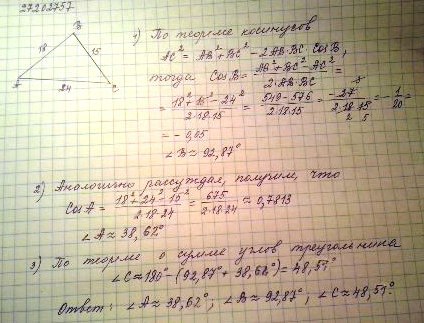 27202757
B
18
15
A
24
C
1) По теореме косинусов
AC² = AB² + BC² - 2AB·BC·CosB,
тогда CosB = (AB² + BC² - AC²)/(2·AB·BC) =
= (18² + 15² - 24²)/(2·18·15) = (549 - 576)/(2·18·15) = (-27)/(2·18·15) = -1/20 =
= -0,05
∠B ≈ 92,87°
2) Аналогично рассуждая, получим, что
CosA = (18² + 24² - 15²)/(2·18·24) = 675/(2·18·24) ≈ 0,7813
∠A ≈ 38,62°
3) По теореме о сумме углов треугольника
∠C ≈ 180° - (92,87° + 38,62°) = 48,51°
Ответ: ∠A ≈ 38,62°; ∠B ≈ 92,87°; ∠C ≈ 48,51°